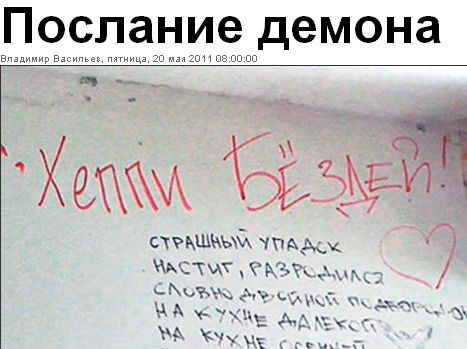 Послание демона
Владимир Васильев, пятница, 20 мая 2011 08:00:00
Хеппи БЁЗДЕЙ!
СТРАШНЫЙ УПАДОК
НАСТИГ, РАЗРОДИЛСЯ
СЛОВНО ДВОЙНОЙ ПОДБОРОДОК
НА КУХНЕ ДАЛЕКОЙ
НА КУХНЕ ОСЕННЕЙ